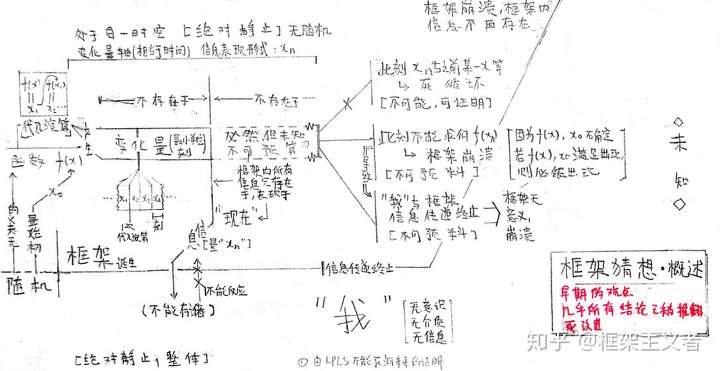 框架崩溃,框架内
信息不再存在
处于自一时空[绝对静止]无随机
变化量轴(相于时间) 信息表现形式:xn
f(x)
x1
x2
代入运算
不存在于
不存在于
此刻xn与之前某一x等
死循环
[不可能,可证明]
函数 f(x)
x0
变化量
必然但未知
不可预算①
此刻不能求得f(xn)
框架崩溃
[不可预料]
因为f(x),x0无确定
若f(x),x0满足出现
则必能出现
未知
框架内所有
信息只存在
于,表现于
"现在"
x1 x2 x3 x4
代入运算
"我"与框架
信息传递终止
[不可预料]
框架无
意义,
崩溃
框架 诞生
信息[是"xn"]
信息传递终止
随机
不能反应
(不能存储)
"我"
无意识
无介质
无信息
[绝对静止,整体]
①由LPLS不能预测未来的证明
框架猜想·概述
早期的观点
几乎所有结论已被推翻
或改进
知乎 @框架主义者